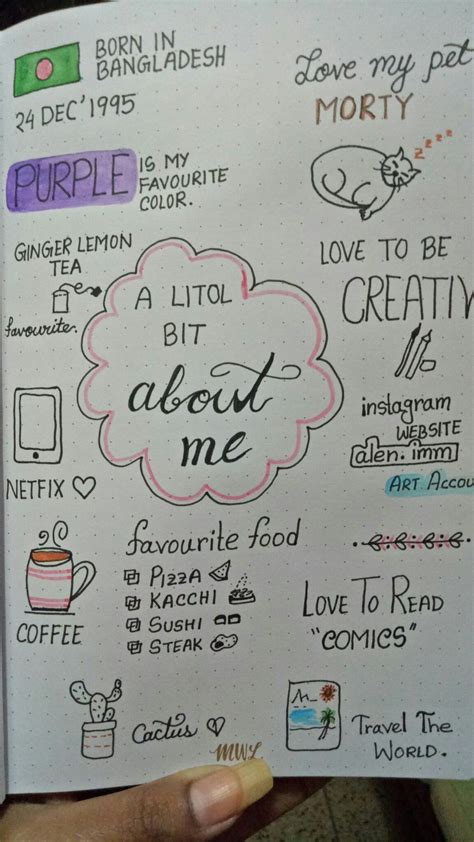 BORN IN
BANGLADESH
24 DEC'1995
Love my pet
MORTY
zzzz
PURPLE
IS MY
FAVOURITE
COLOR.
GINGER LEMON
TEA
favourite.
LOVE TO BE
CREATIV
A LITOL
BIT
about
me
instagram
WEBSITE
alen.imm
ART ACCOU
NETFIX ♡
favourite food
PIZZA
KACCHI
SUSHI
STEAK
COFFEE
LOVE TO READ
"COMICS"
Cactus ♡
Travel The
World.